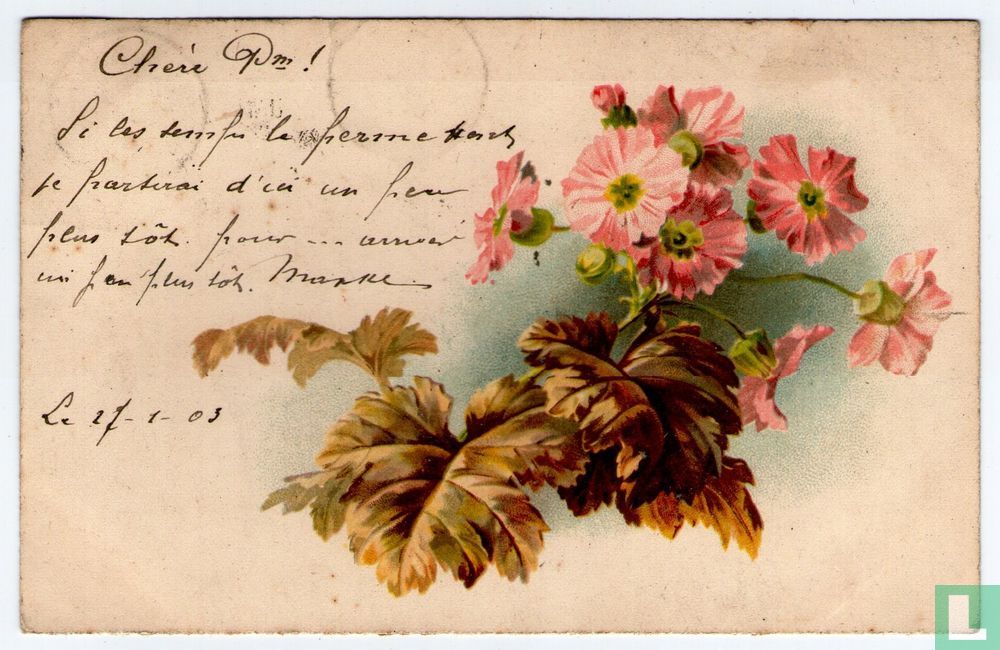 Chère Pm !
Si les temps le permettent
je partirai d'ici un peu
plus tôt. pour ... arriver
un peu plus tôt.
Le 27-1-03
L